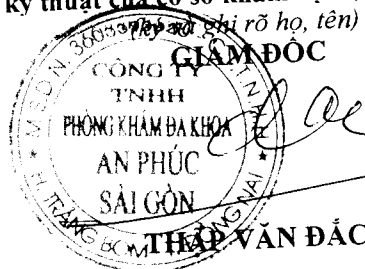 kỹ thuật của cơ sở khám
(Ký và ghi rõ họ, tên)
GIÁM ĐỐC
CÔNG TY
TNHH
PHÒNG KHÁM ĐA KHOA
AN PHÚC
SÀI GÒN
H. TRẢNG BOM
ĐỒNG NAI
THÁP VĂN ĐẮC